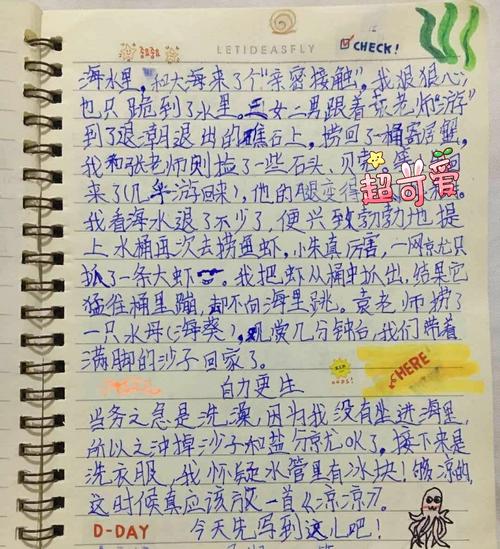 LETIDEASFLY
CHECK!
海水里，和大海来了个“亲密接触”，我狠狠心
也只跪到了水里。三女二男跟着袁老师“游”
到了退潮退出的礁石上，捞回了一桶寄居蟹，
我和张老师则捡了一些石头、贝壳
来了(几乎游回来)，他的腿变得
超可爱
我看海水退了不少了，便兴致勃勃地提
上水桶再次去捞鱼虾，小朱真厉害，一网就只
抓了一条大虾。我把虾从桶中扒出，结果它
猛往桶里蹦，却不向海里跳。袁老师捞了
一只水母(海葵)，观赏几分钟后，我们带着
满脚的沙子回家了。
HERE!
自力更生
当务之急是洗澡，因为我没有坐进海里，
所以之冲掉沙子和盐分就OK了，接下来是
洗衣服，我怀疑水管里有冰块！够凉的，
这时候真应该放一首《凉凉》。
D-DAY
今天先写到这儿吧！